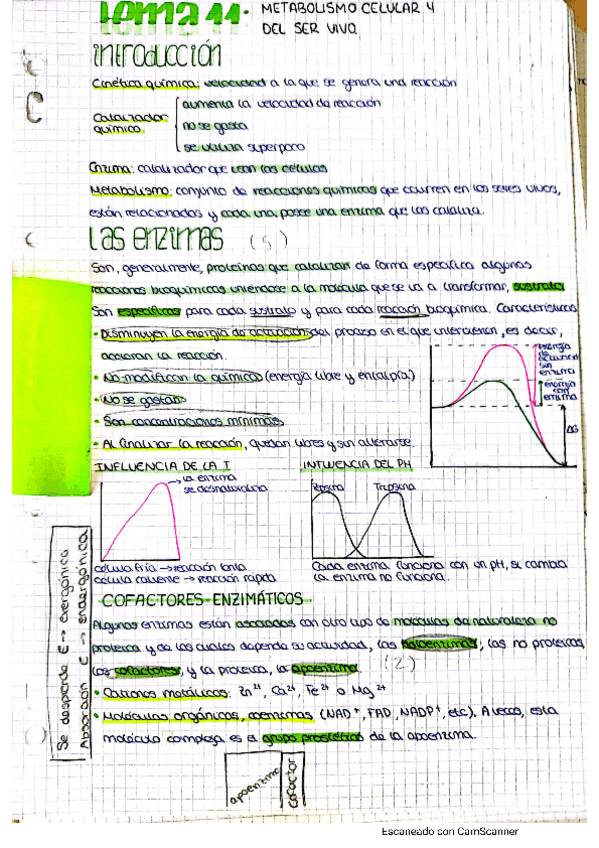 tema 11. METABOLISMO CELULAR Y
DEL SER VIVO
introducción
Cinética química: velocidad a la que se genera una reacción
Catalizador químico
aumenta la velocidad de reacción
no se gasta
se utiliza superpoco
Enzima: catalizador que usan las células
Metabolismo: conjunto de reacciones químicas que ocurren en los seres vivos,
están relacionados y cada una posee una enzima que las cataliza.
las enzimas (5)
Son, generalmente, proteínas que catalizan de forma específica algunas
reacciones bioquímicas uniéndose a la molécula que se va a transformar, sustrato
Son específicas para cada sustrato y para cada reacción bioquímica. Características
• Disminuyen la energía de activación del proceso en el que intervienen, es decir,
aceleran la reacción.
• No modifican la química (energía libre y entalpía)
• No se gastan
• Son concentraciones mínimas
• Al finalizar la reacción, quedan libres y sin alterarse.
energía de activación sin enzima
energía con enzima
ΔG
INFLUENCIA DE LA T
la enzima
se desnaturaliza
célula fría → reacción lenta
célula caliente → reacción rápida
INFLUENCIA DEL PH
Pepsina Tripsina
Cada enzima funciona con un pH, si cambia
la enzima no funciona.
COFACTORES ENZIMÁTICOS
Algunas enzimas están asociadas con otro tipo de moléculas de naturaleza no
proteica y de las cuales depende su actividad, las holoenzimas; las no proteicas,
los cofactores, y la proteica, la apoenzima. (2)
• Cationes metálicos: Zn²⁺, Ca²⁺, Fe²⁺ o Mg²⁺
• Moléculas orgánicas, coenzimas (NAD⁺, FAD, NADP⁺, etc). A veces, esta
molécula compleja es el grupo prostético de la apoenzima.
apoenzima
cofactor
Se desprende E → exergónica
Absorción E → endergónica
Escaneado con CamScanner